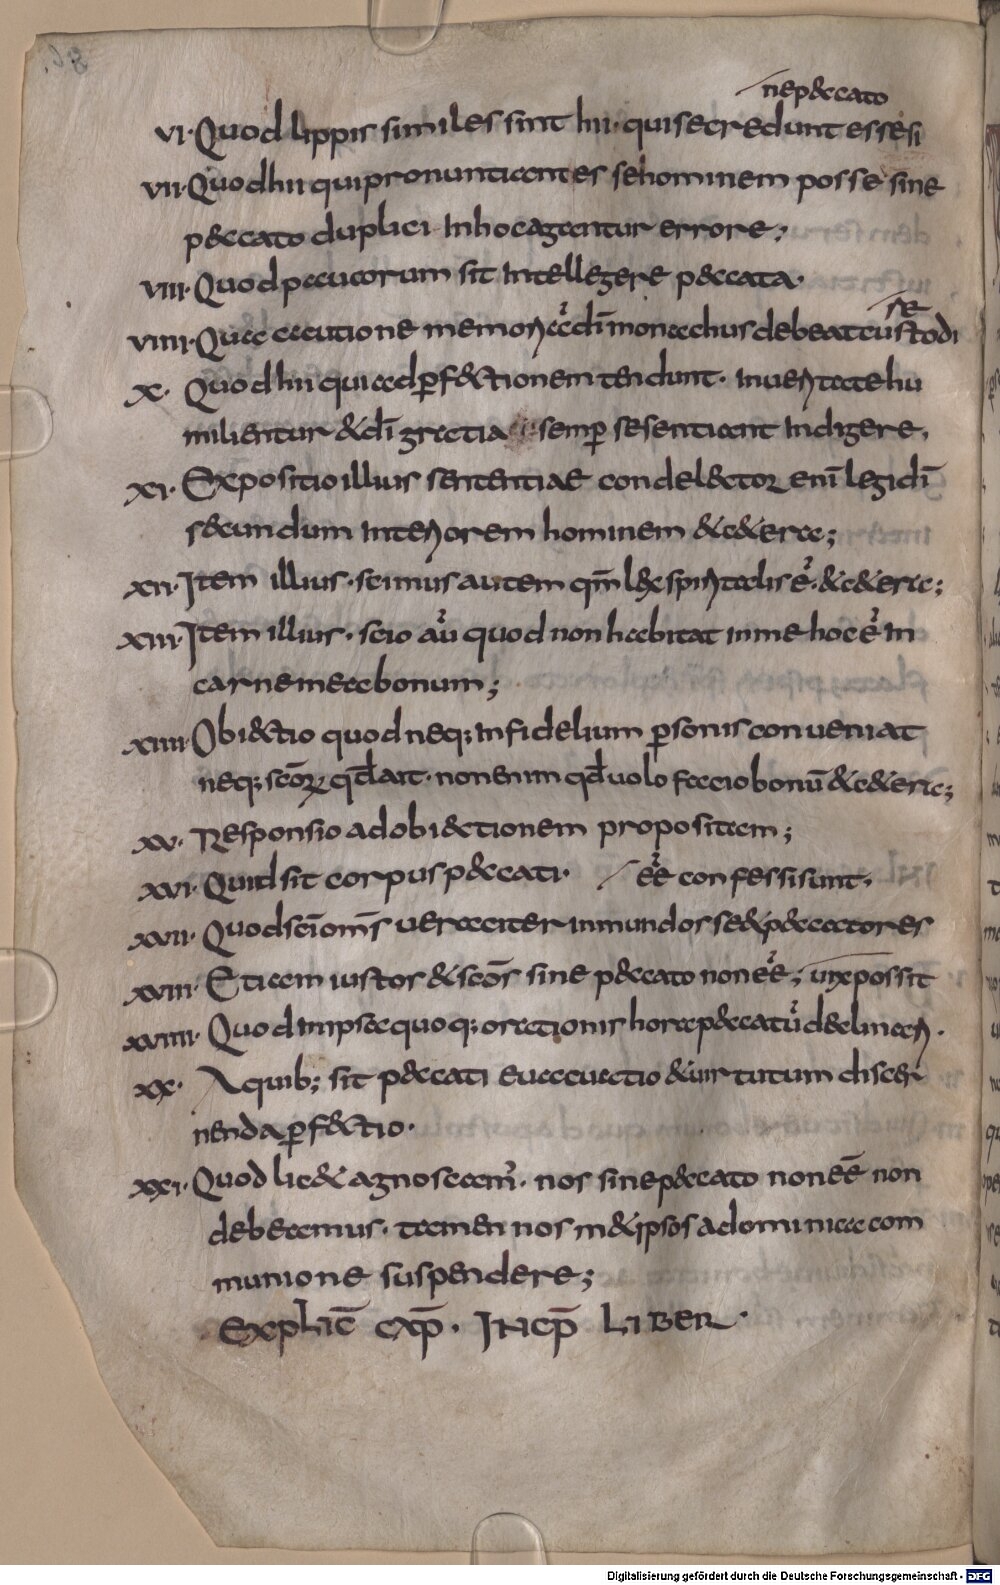 ne peccato
VI· Quod lippis similes sint hii· qui se credunt esse si
VII· Quod hii qui pronuntiant es se hominem posse sine
peccato duplici in hoc agantur errore;
VIII· Quod paucorum sit intellegere peccata·
se
VIIII· Qua cautione memoria dī monachus debeat custodi
X· Quod hii qui ad ꝑfectionem tendunt· in ueritate hu
milientur & dī gratia semꝑ se sentiant indigere,
XI· Expositio illius sententiae condelector enī legi dī
secundum interiorem hominem & cetera;
XII· Item illius· scimus autem qm̄ lex spiritalis ē· & cetera;
XIII· Item illius· scio aū quod non habitat in me hoc ē in
carne mea bonum;
XIIII· Obiectio quod neq; infidelium ꝑsonis conueniat
neq; scōꝝ qđ ait· non enim qđ uolo facio bonū & cetera;
XV· Responsio ad obiectionem propositam;
XVI· Quid sit corpus peccati· eē confessi sunt·
XVII· Quod scī oms̄ ueraciter inmundos se & peccatores
XVIII· Etiam iustos & scōs sine peccato non eē; uix possit
XVIIII· Quod in ipsa quoq; orationis hora peccatū declinari·
XX· A quib; sit peccati euacuatio & uirtutum discer
nenda ꝑfectio·
XXI· Quod licet agnoscam̄· nos sine peccato non eē non
debeamus· tamen nosmet ipsos a dominica com
munione suspendere;
Explic̄ cap̄· Incp̄ liber·
Digitalisierung gefördert durch die Deutsche Forschungsgemeinschaft - DFG